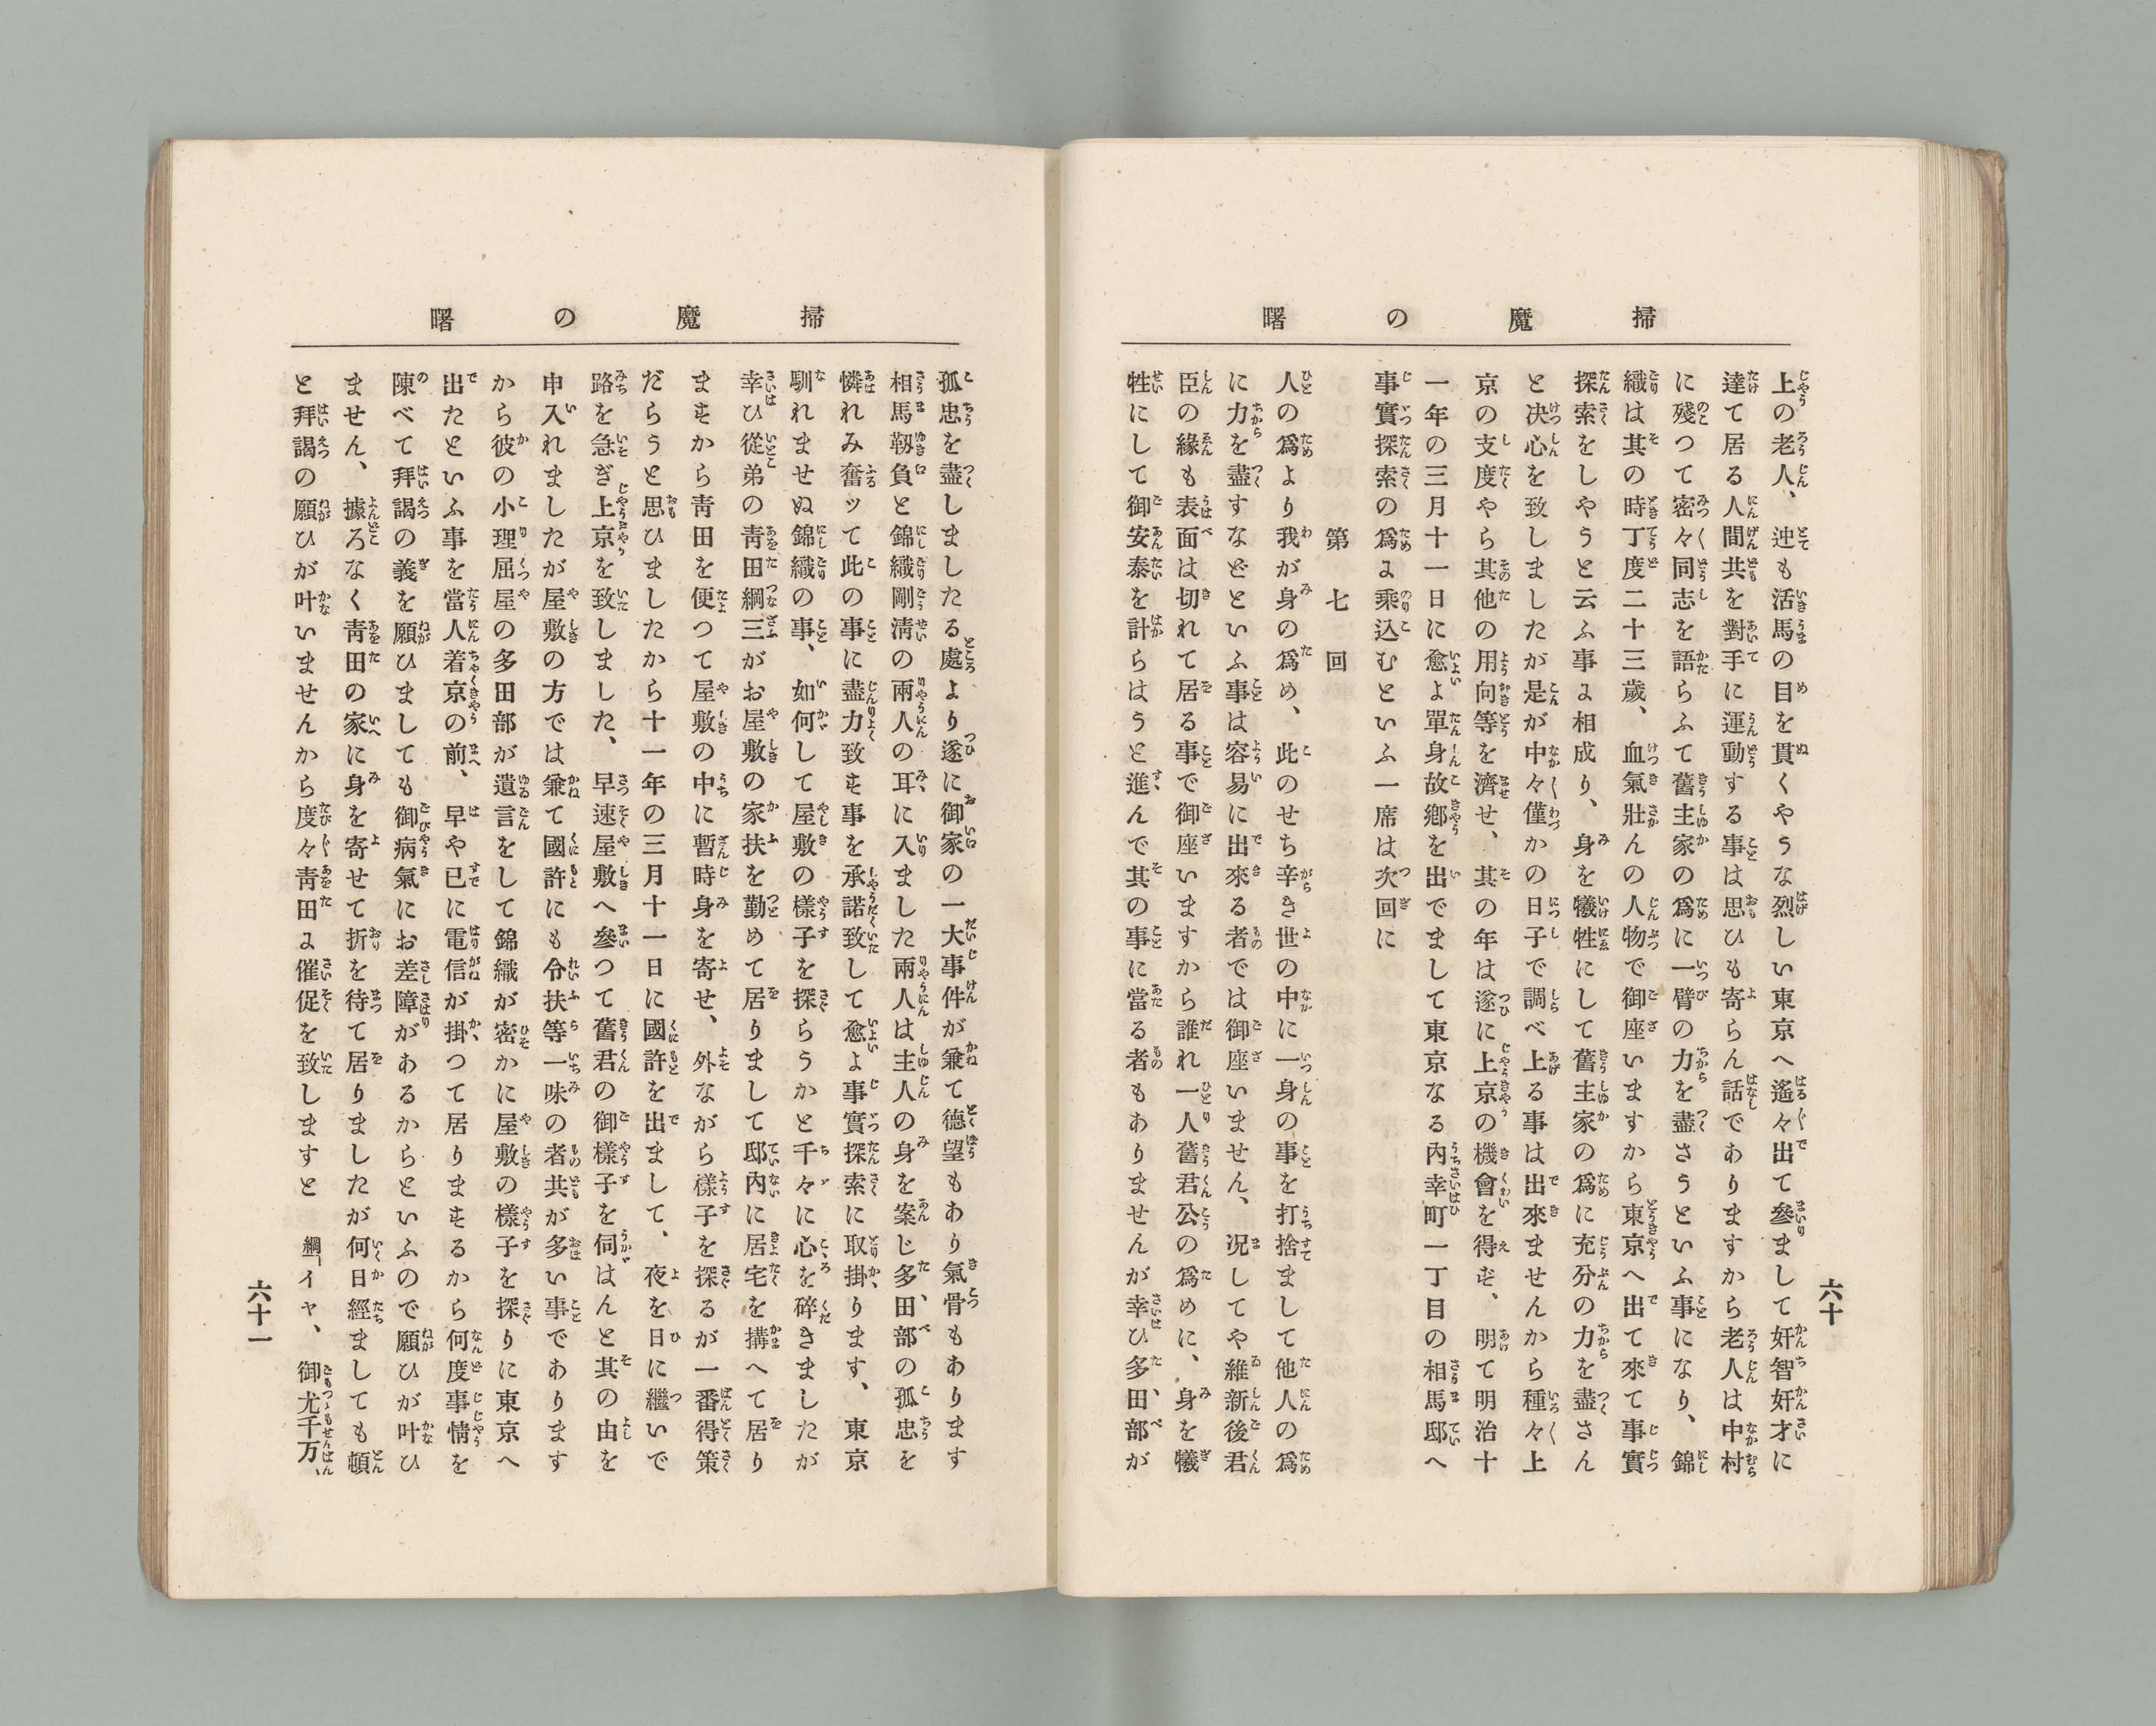 掃魔の曙
上の老人、迚も活馬の目を貫くやうな烈しい東京へ遙々出て參まして奸智奸才に
達て居る人間共を對手に運動する事は思ひも寄らん話でありますから老人は中村
に殘つて密々同志を語らふて舊主家の爲に一臂の力を盡さうといふ事になり、錦
織は其の時丁度二十三歲、血氣壯んの人物で御座いますから東京へ出て來て事實
探索をしやうと云ふ事に相成り、身を犧牲にして舊主家の爲に充分の力を盡さん
と决心を致しましたが是が中々僅かの日子で調べ上る事は出來ませんから種々上
京の支度やら其他の用向等を濟せ、其の年は遂に上京の機會を得ず、明て明治十
一年の三月十一日に愈よ單身故鄉を出でまして東京なる內幸町一丁目の相馬邸へ
事實探索の爲に乘込むといふ一席は次回に
第七回
人の爲より我が身の爲め、此のせち辛き世の中に一身の事を打捨まして他人の爲
に力を盡すなどといふ事は容易に出來る者では御座いません、况してや維新後君
臣の緣も表面は切れて居る事で御座いますから誰れ一人舊君公の爲めに、身を犧
牲にして御安泰を計らはうと進んで其の事に當る者もありませんが幸ひ多田部が
六十
掃魔の曙
孤忠を盡しましたる處より遂に御家の一大事件が兼て德望もあり氣骨もあります
相馬靱負と錦織剛淸の兩人の耳に入ました兩人は主人の身を案じ多田部の孤忠を
憐れみ奮ッて此の事に盡力致す事を承諾致して愈よ事實探索に取掛ります、東京
馴れませぬ錦織の事、如何して屋敷の樣子を探らうかと千々に心を碎きましたが
幸ひ從弟の靑田綱三がお屋敷の家扶を勤めて居りまして邸內に居宅を搆へて居り
ますから靑田を便つて屋敷の中に暫時身を寄せ、外ながら樣子を探るが一番得策
だらうと思ひましたから十一年の三月十一日に國許を出まして、夜を日に繼いで
路を急ぎ上京を致しました、早速屋敷へ參つて舊君の御樣子を伺はんと其の由を
申入れましたが屋敷の方では兼て國許にも令扶等一味の者共が多い事であります
から彼の小理屈屋の多田部が遺言をして錦織が密かに屋敷の樣子を探りに東京へ
出たといふ事を當人着京の前、早や已に電信が掛つて居りますから何度事情を
陳べて拜謁の義を願ひましても御病氣にお差障があるからといふので願ひが叶ひ
ません、據ろなく靑田の家に身を寄せて折を待て居りましたが何日經ましても頓
と拜謁の願ひが叶いませんから度々靑田に催促を致しますと 綱「イヤ、御尤千万、
六十一